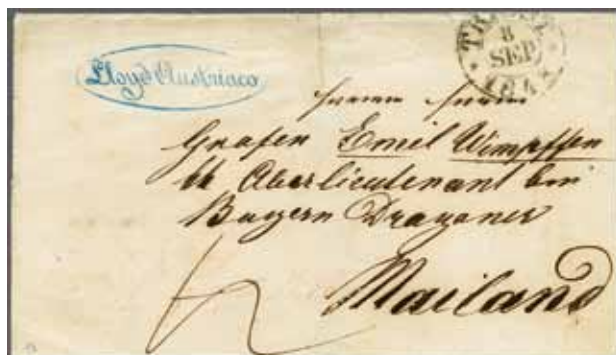 Lloyd Austriaco
8
SEP
Herrn Herrn
Grafen Emil Wimpffen
kk Oberlieutenant bei
Bayern Dragoner
Mailand